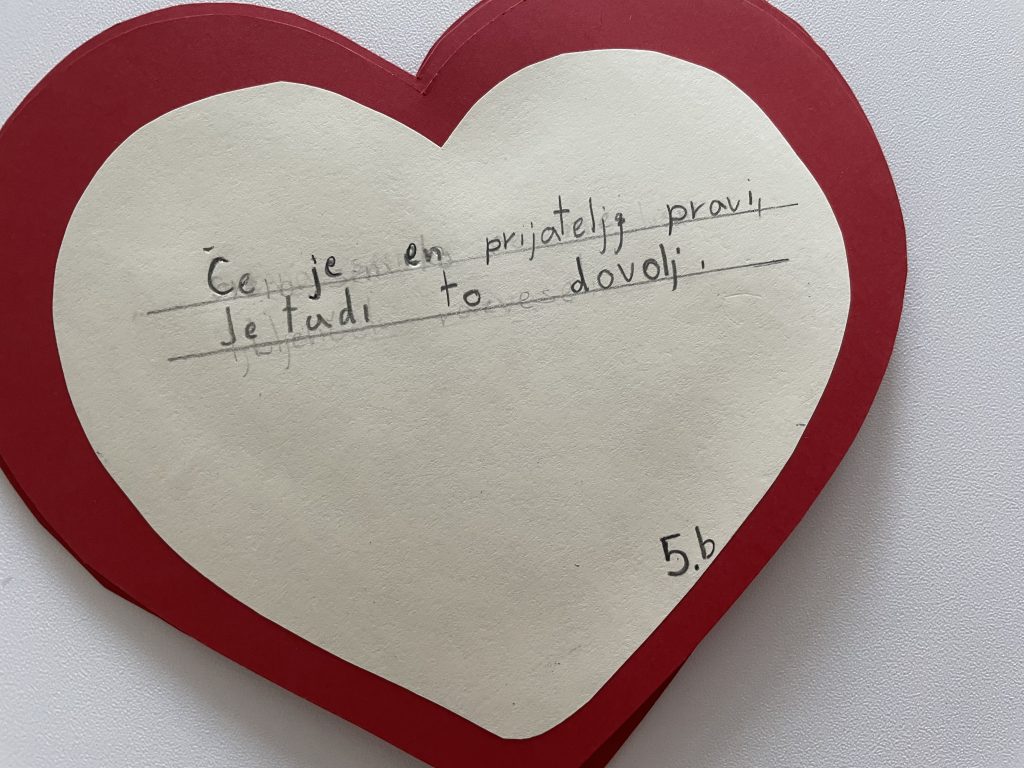 Če je en prijatelj pravi,
Je tudi to dovolj.
5.b